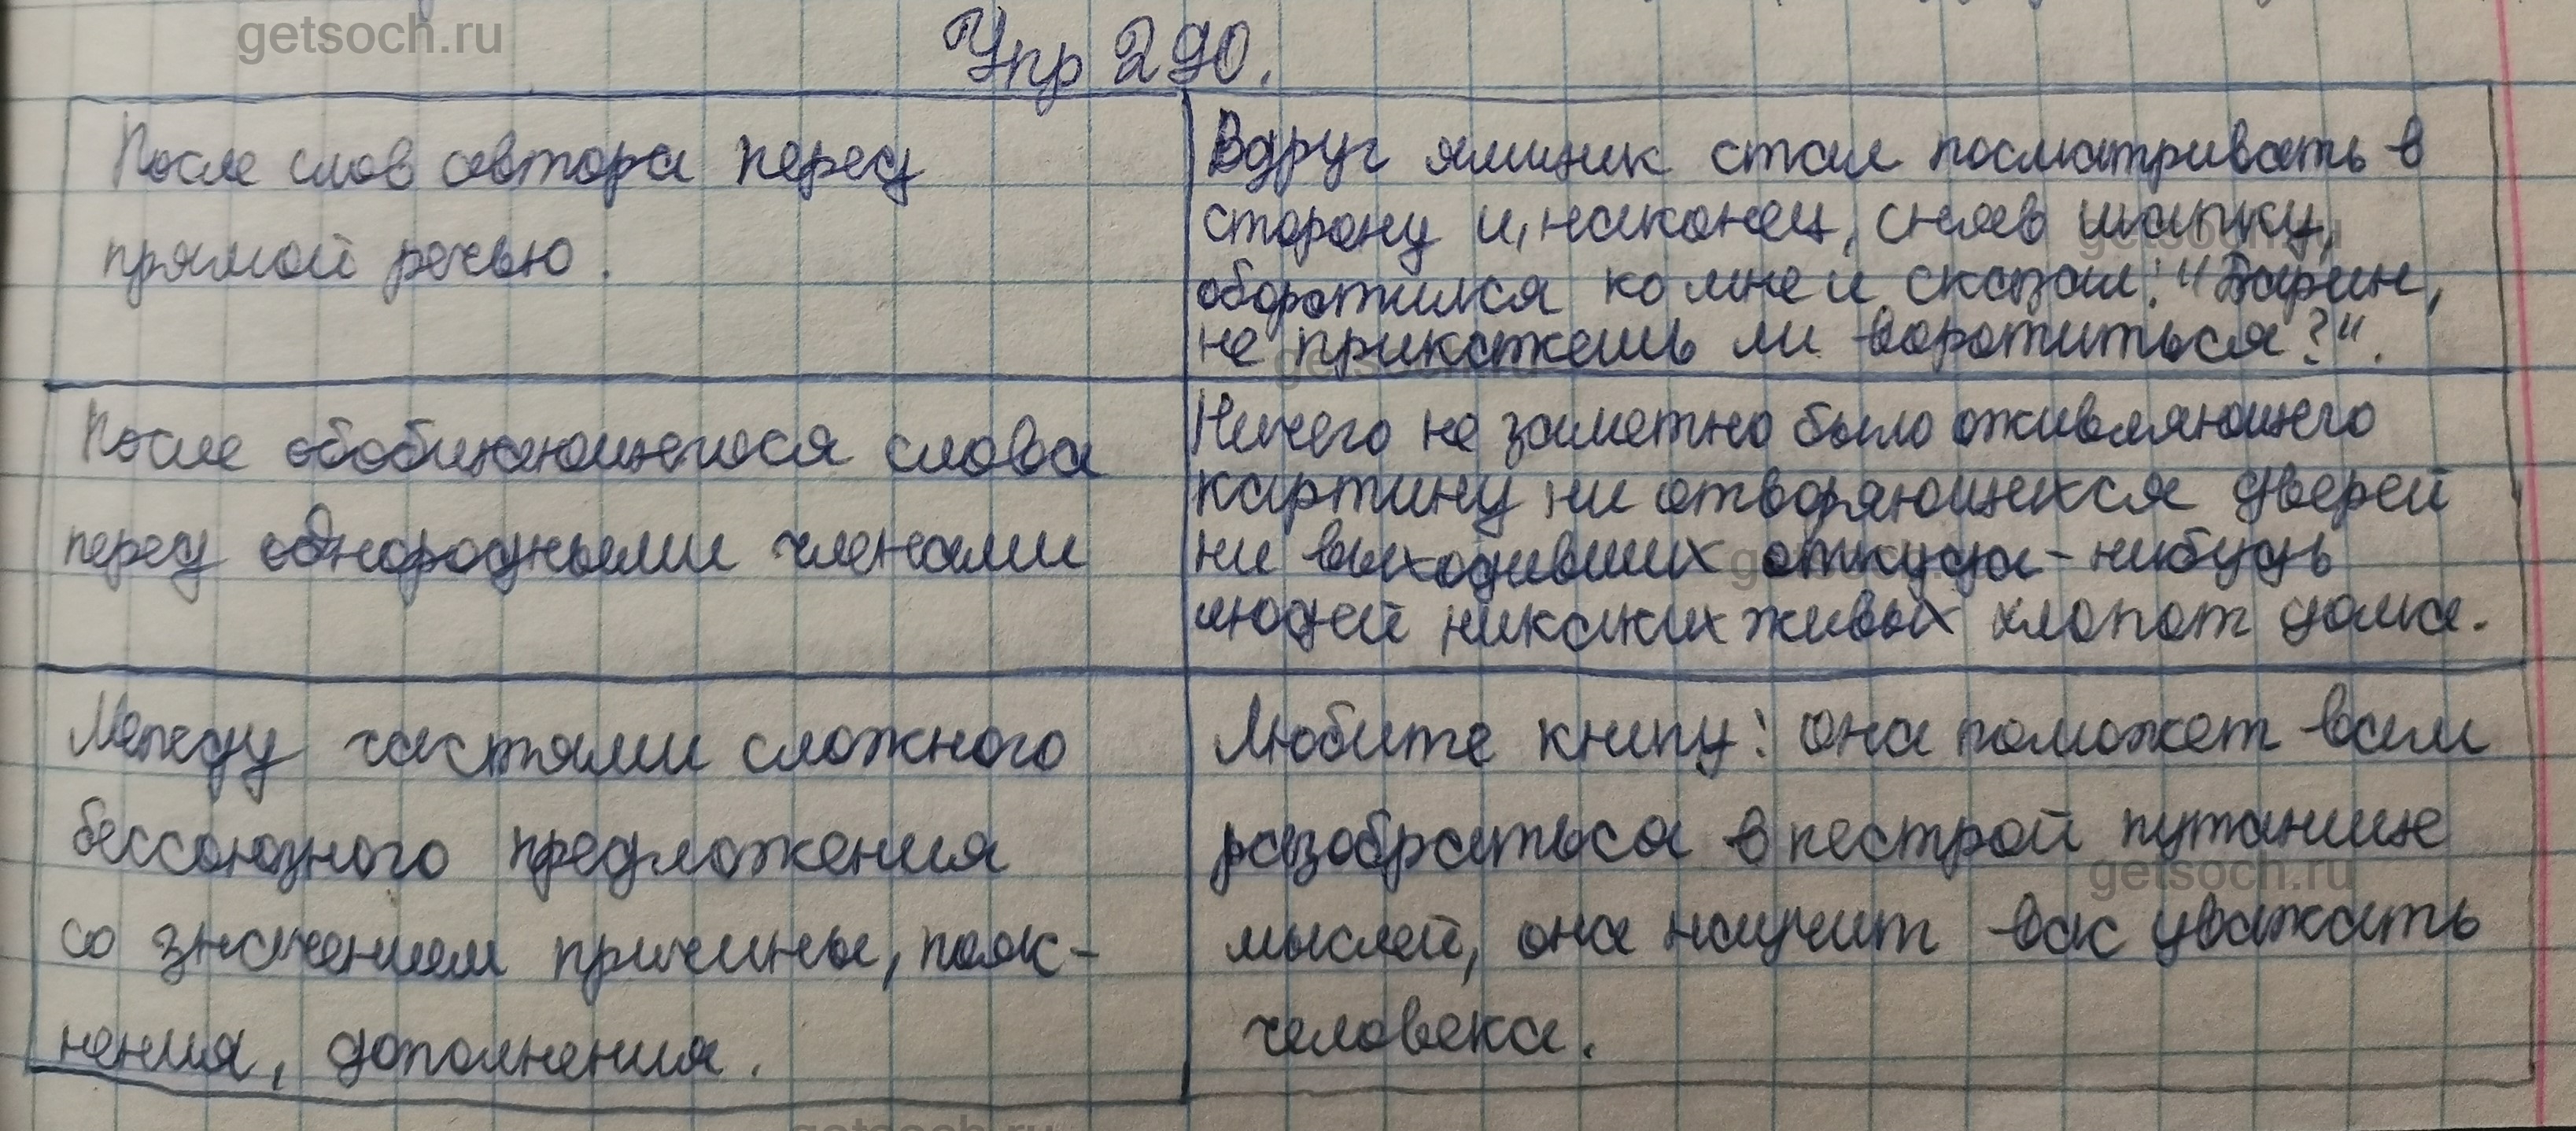 getsoch.ru
Упр 290.
После слов автора перед
прямой речью.
Вдруг ямщик стал посматривать в
сторону и, наконец, сняв шапку,
getsoch.ru
оборотился ко мне и сказал: "Барин,
не прикажешь ли воротиться?".
getsoch.ru
После обобщающегося слова
перед однородными членами
Ничего не заметно было оживляющего
картину ни отворяющихся дверей
ни выходивших откуда-нибудь
getsoch.ru
людей никаких живых хлопот дома.
Между частями сложного
бессоюзного предложения
со значением причины, пояс-
нения, дополнения.
Любите книгу: она поможет вам
разобраться в пестрой путанице
getsoch.ru
мыслей, она научит вас уважать
человека.
getsoch.ru